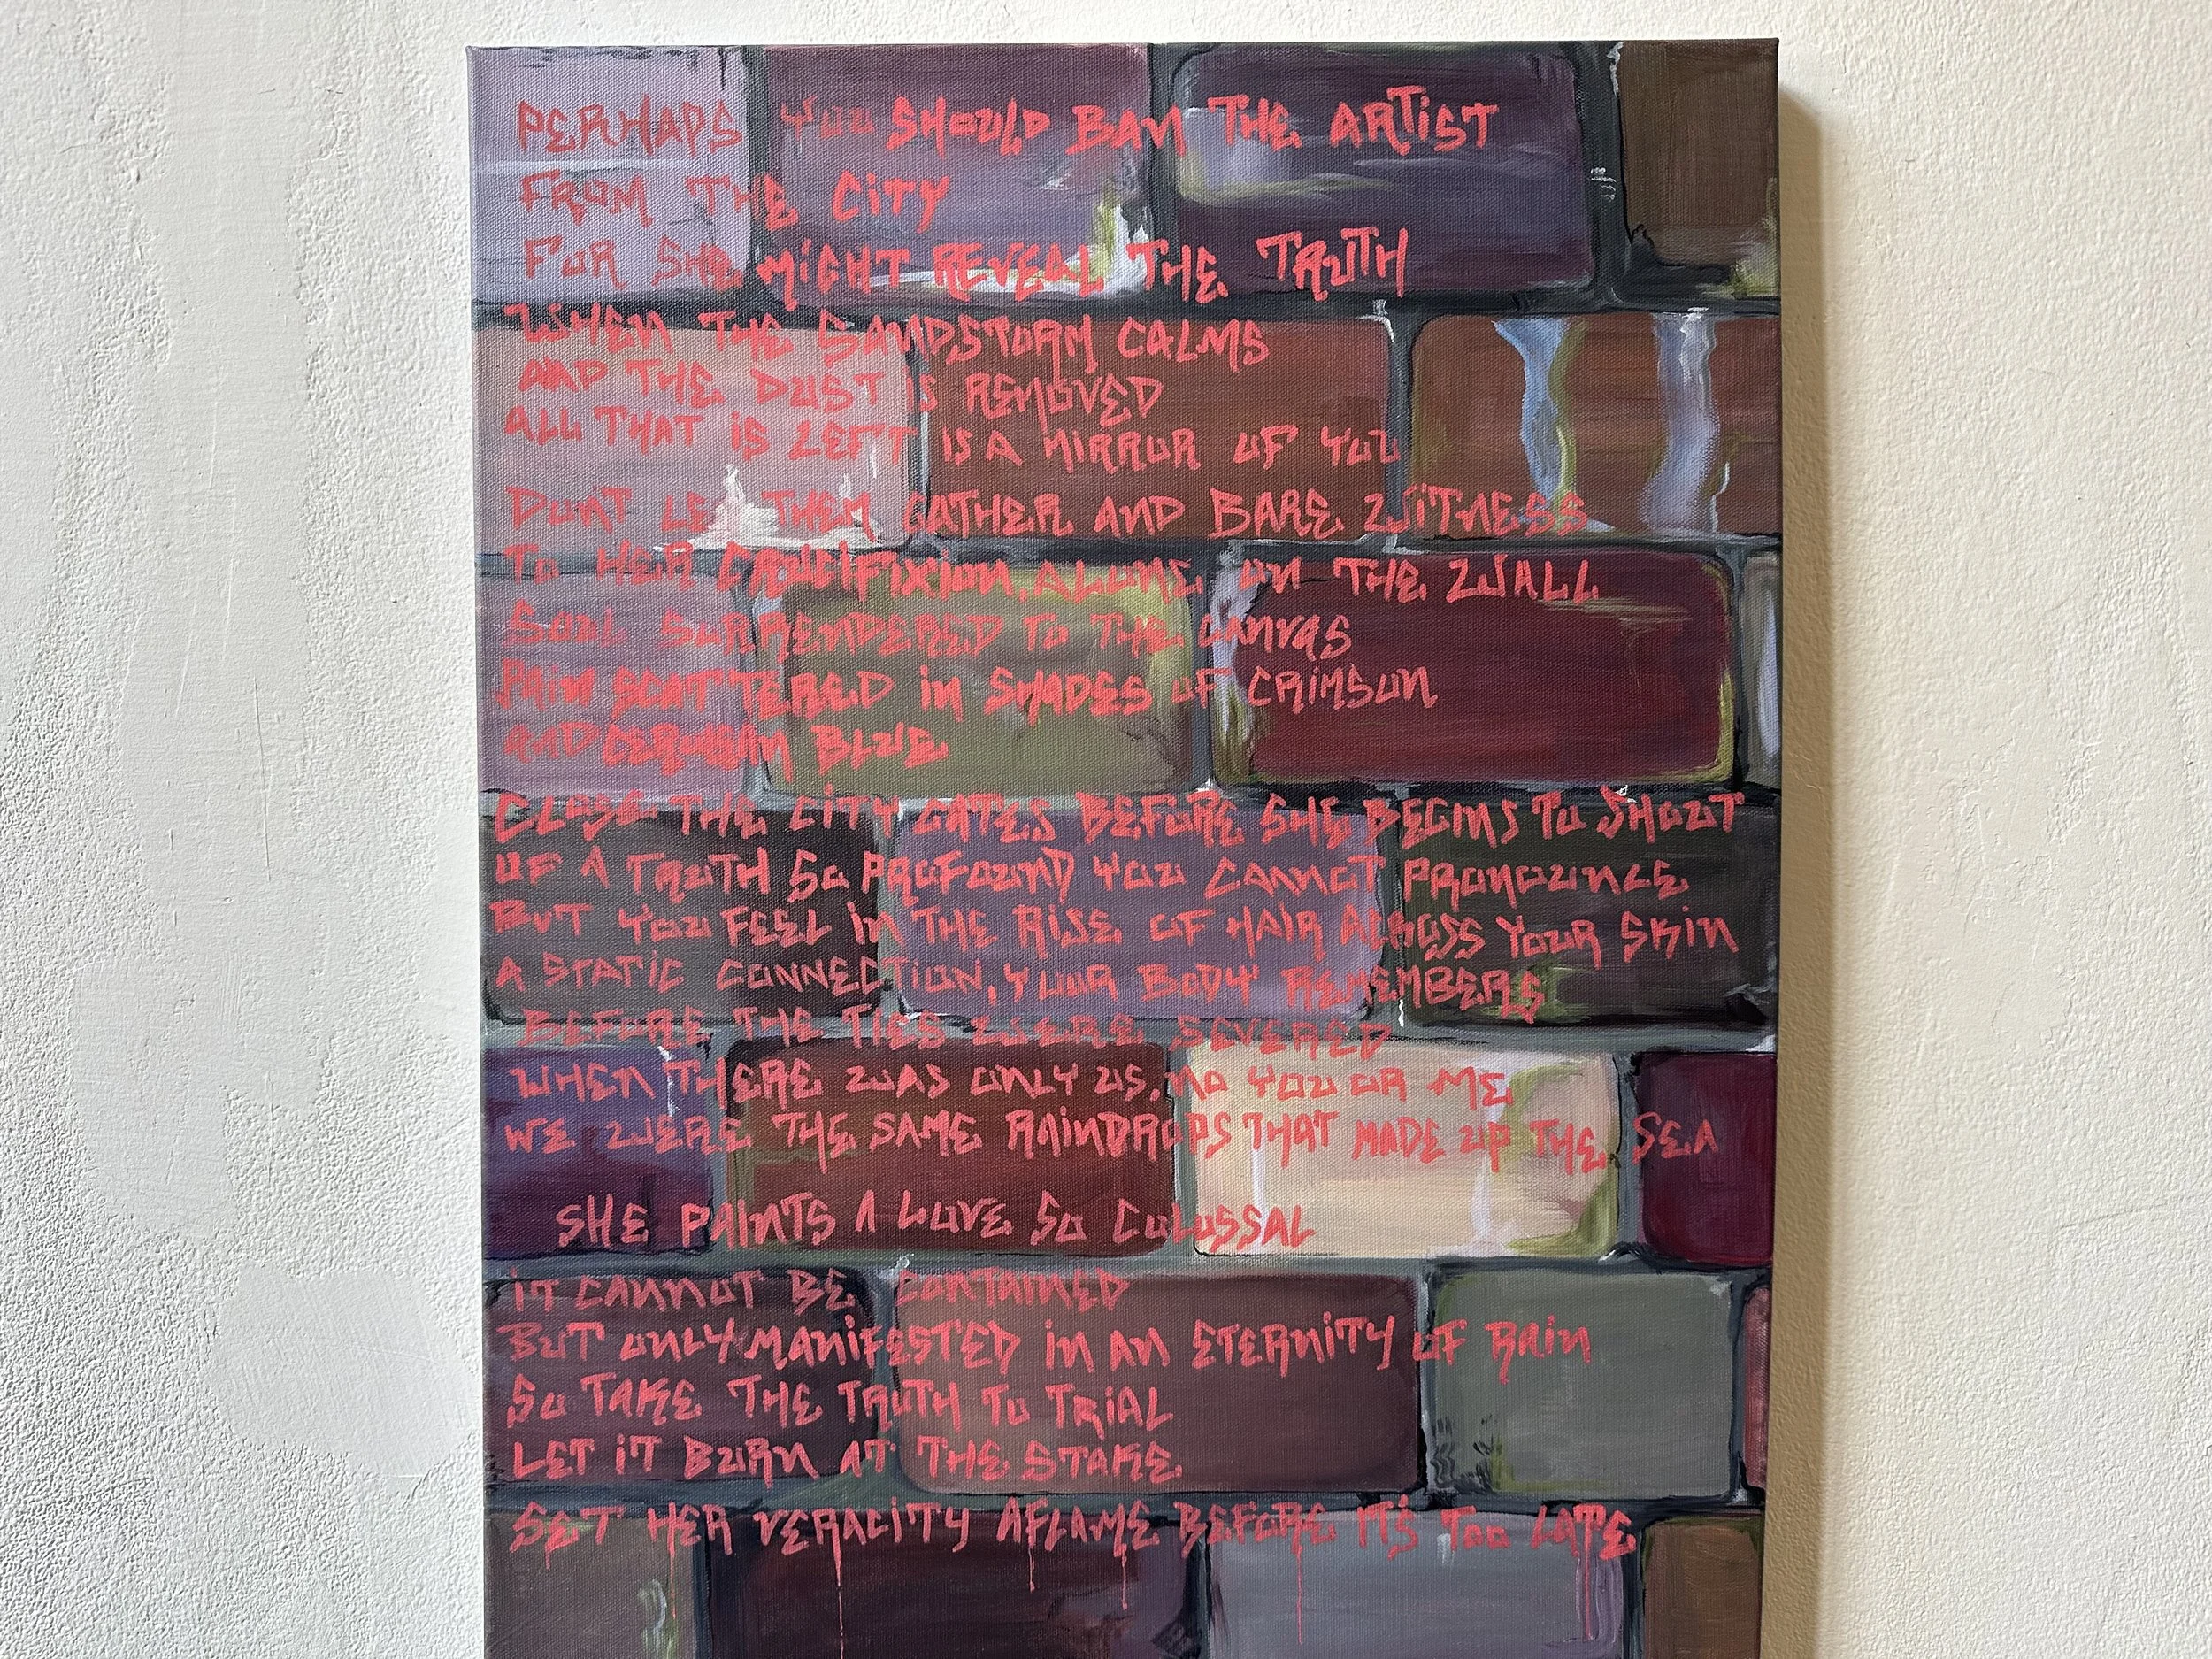 PERHAPS YOU SHOULD BAN THE ARTIST
FROM THE CITY
FOR SHE MIGHT REVEAL THE TRUTH
WHEN THE SANDSTORM CALMS
AND THE DUST IS REMOVED
ALL THAT IS LEFT IS A MIRROR OF YOU
DONT LET THEM GATHER AND BARE WITNESS
TO HER CRUCIFIXION, ALONE ON THE WALL
SOUL SURRENDERED TO THE CANVAS
PAIN SCATTERED IN SHADES OF CRIMSON
AND CERULEAN BLUE
CLOSE THE CITY GATES BEFORE SHE BEGINS TO SHOUT
OF A TRUTH SO PROFOUND YOU CANNOT PRONOUNCE
BUT YOU FEEL IN THE RISE OF HAIR ACROSS YOUR SKIN
A STATIC CONNECTION, YOUR BODY REMEMBERS
BEFORE THE TIES WERE SEVERED
WHEN THERE WAS ONLY US, NO YOU OR ME
WE WERE THE SAME RAINDROPS THAT MADE UP THE SEA
SHE PAINTS A LOVE SO COLOSSAL
IT CANNOT BE CONTAINED
BUT ONLY MANIFESTED IN AN ETERNITY OF RAIN
SO TAKE THE TRUTH TO TRIAL
LET IT BURN AT THE STAKE
SET HER VERACITY AFLAME BEFORE IT'S TOO LATE